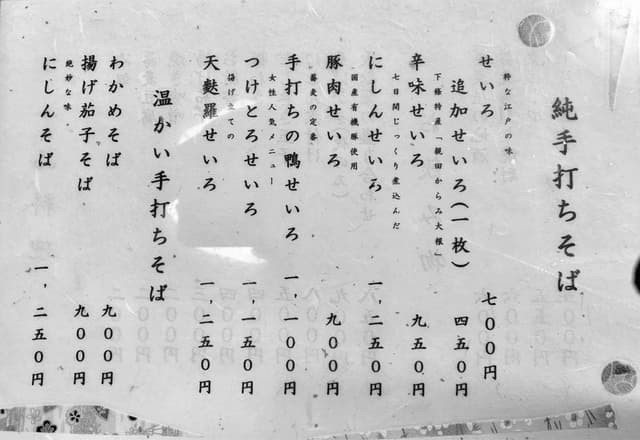 純手打ちそば
粋な江戸の味
せいろ 七〇〇円
追加せいろ(一枚) 四五〇円
下條特産「親田からみ大根」
辛味せいろ 九五〇円
七日間じっくり煮込んだ
にしんせいろ 一、二五〇円
国産有機豚使用
豚肉せいろ 九〇〇円
蕎麦の定番
手打ちの鴨せいろ 一、一〇〇円
女性人気メニュー
つけとろせいろ 一、一五〇円
揚げ立ての
天麩羅せいろ 一、二五〇円
温かい手打ちそば
わかめそば 九〇〇円
揚げ茄子そば 九〇〇円
絶妙な味
にしんそば 一、二五〇円